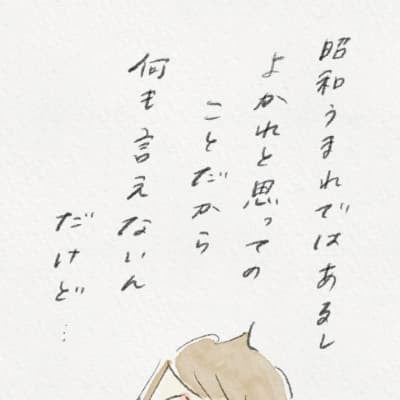 昭和うまれではあるし
よかれと思っての
ことだから
何も言えないん
だけど…